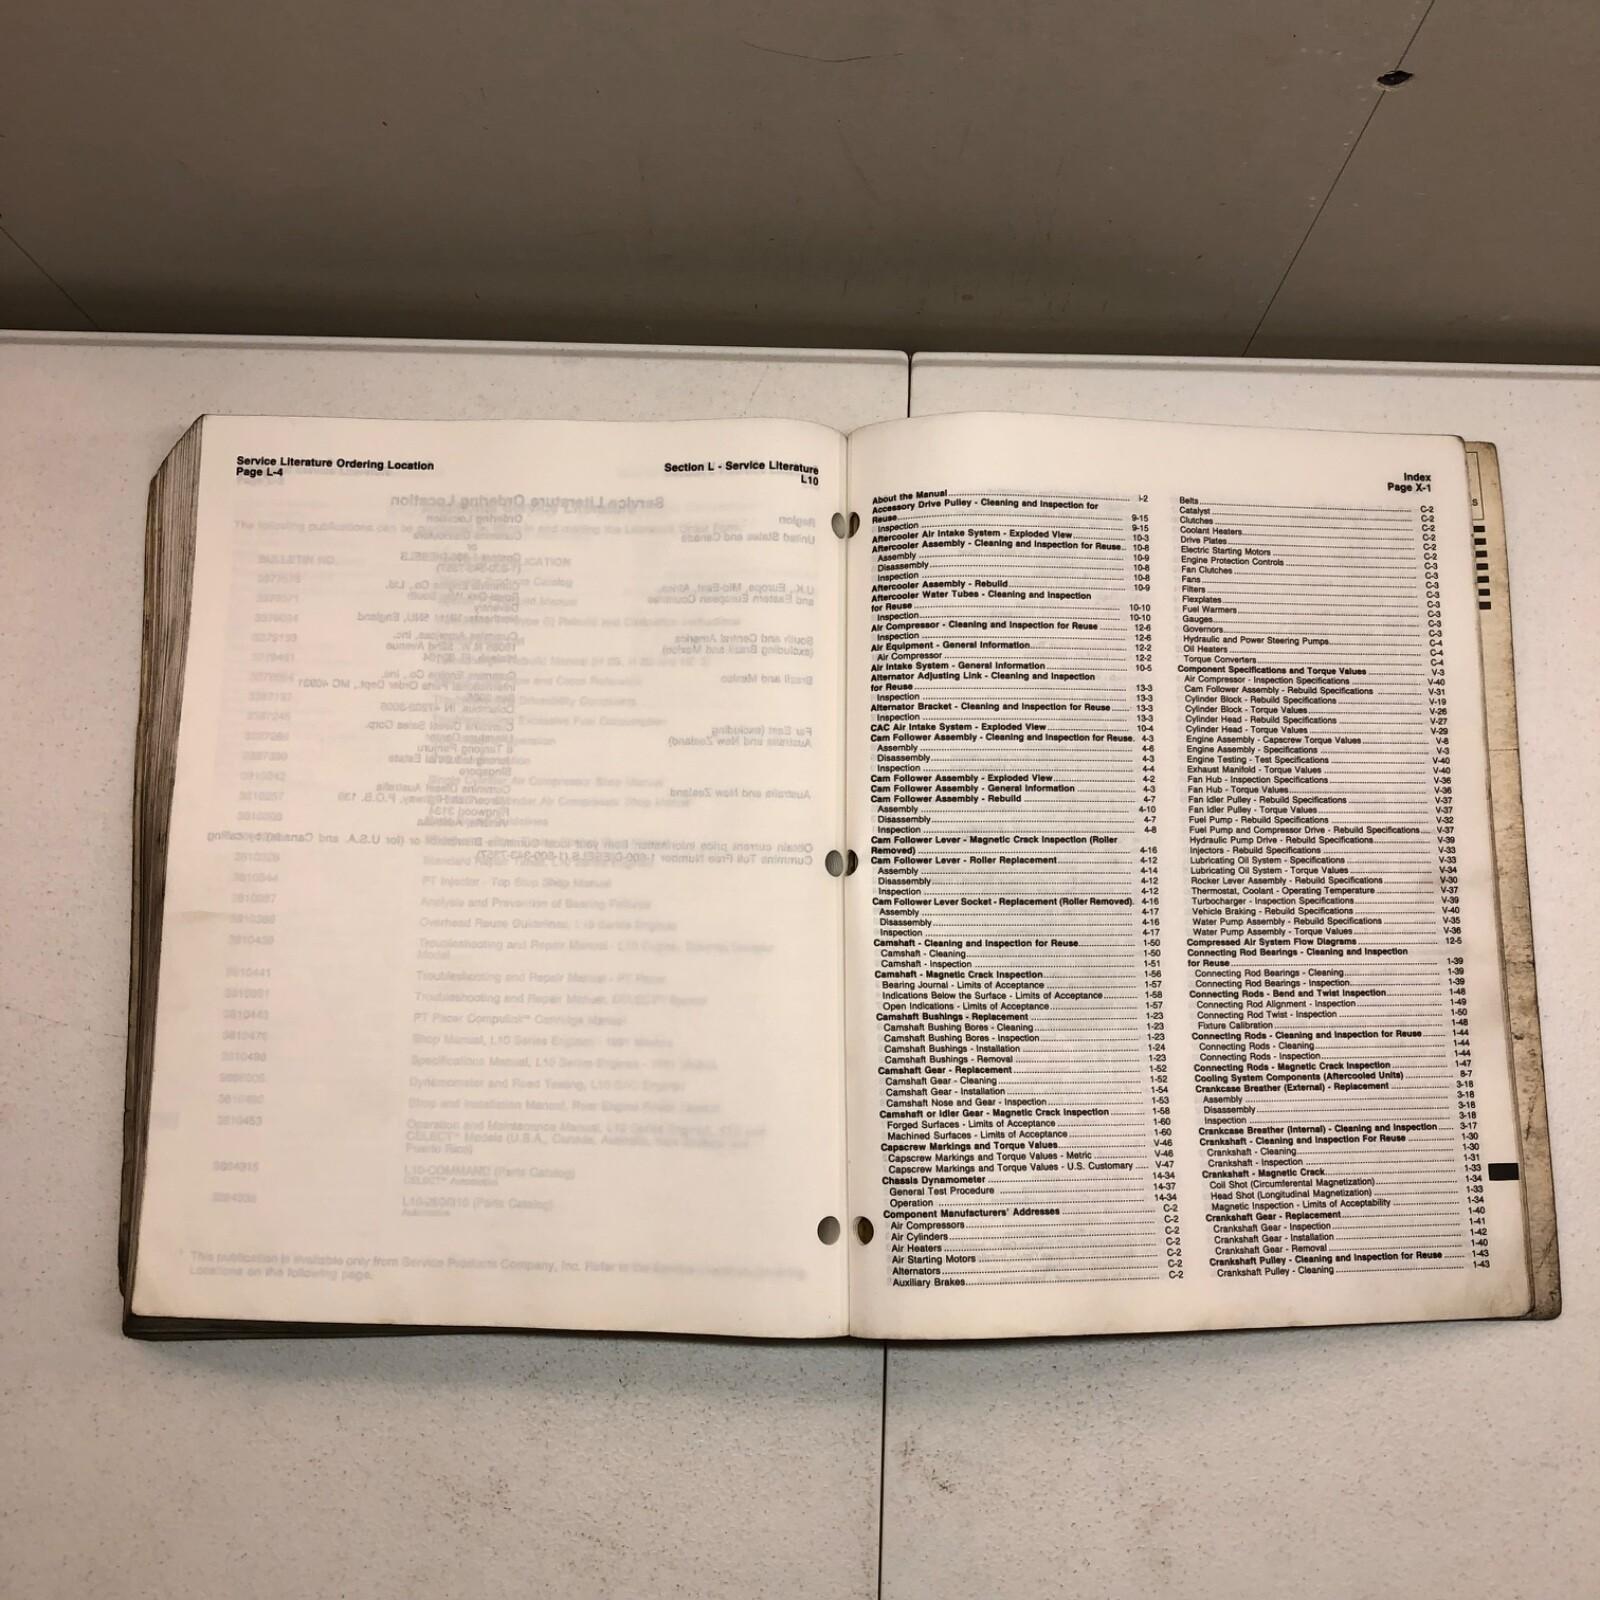 Service Literature Ordering Location
Page L-4
Section L - Service Literature
L10
Index
Page X-1
About the Manual I-2
Accessory Drive Pulley - Cleaning and Inspection for
Reuse 9-15
Inspection 9-15
Aftercooler Air Intake System - Exploded View 10-3
Aftercooler Assembly - Cleaning and Inspection for Reuse 10-8
Assembly 10-9
Disassembly 10-8
Inspection 10-8
Aftercooler Assembly - Rebuild 10-9
Aftercooler Water Tubes - Cleaning and Inspection
for Reuse 10-10
Inspection 10-10
Air Compressor - Cleaning and Inspection for Reuse 12-6
Inspection 12-6
Air Equipment - General Information 12-2
Air Compressor 12-2
Air Intake System - General Information 10-5
Alternator Adjusting Link - Cleaning and Inspection
for Reuse 13-3
Inspection 13-3
Alternator Bracket - Cleaning and Inspection for Reuse 13-3
Inspection 13-3
CAC Air Intake System - Exploded View 10-4
Cam Follower Assembly - Cleaning and Inspection for Reuse. 4-3
Assembly 4-6
Disassembly 4-3
Inspection 4-4
Cam Follower Assembly - Exploded View 4-2
Cam Follower Assembly - General Information 4-3
Cam Follower Assembly - Rebuild 4-7
Assembly 4-10
Disassembly 4-7
Inspection 4-8
Cam Follower Lever - Magnetic Crack Inspection (Roller
Removed) 4-16
Cam Follower Lever - Roller Replacement 4-12
Assembly 4-14
Disassembly 4-12
Inspection 4-12
Cam Follower Lever Socket - Replacement (Roller Removed). 4-16
Assembly 4-17
Disassembly 4-16
Inspection 4-17
Camshaft - Cleaning and Inspection for Reuse 1-50
Camshaft - Cleaning 1-50
Camshaft - Inspection 1-51
Camshaft - Magnetic Crack Inspection 1-56
Bearing Journal - Limits of Acceptance 1-57
Indications Below the Surface - Limits of Acceptance 1-58
Open Indications - Limits of Acceptance 1-57
Camshaft Bushings - Replacement 1-23
Camshaft Bushing Bores - Cleaning 1-23
Camshaft Bushing Bores - Inspection 1-23
Camshaft Bushings - Installation 1-24
Camshaft Bushings - Removal 1-23
Camshaft Gear - Replacement 1-52
Camshaft Gear - Cleaning 1-52
Camshaft Gear - Installation 1-54
Camshaft Nose and Gear - Inspection 1-53
Camshaft or Idler Gear - Magnetic Crack Inspection 1-58
Forged Surfaces - Limits of Acceptance 1-60
Machined Surfaces - Limits of Acceptance 1-60
Capscrew Markings and Torque Values V-46
Capscrew Markings and Torque Values - Metric V-46
Capscrew Markings and Torque Values - U.S. Customary V-47
Chassis Dynamometer 14-34
General Test Procedure 14-37
Operation 14-34
Component Manufacturers' Addresses C-2
Air Compressors C-2
Air Cylinders C-2
Air Heaters C-2
Air Starting Motors C-2
Alternators C-2
Auxiliary Brakes C-2
Belts C-2
Catalyst C-2
Clutches C-2
Coolant Heaters C-2
Drive Plates C-2
Electric Starting Motors C-2
Engine Protection Controls C-3
Fan Clutches C-3
Fans C-3
Filters C-3
Flexplates C-3
Fuel Warmers C-3
Gauges C-3
Governors C-3
Hydraulic and Power Steering Pumps C-4
Oil Heaters C-4
Torque Converters C-4
Component Specifications and Torque Values V-3
Air Compressor - Inspection Specifications V-40
Cam Follower Assembly - Rebuild Specifications V-31
Cylinder Block - Rebuild Specifications V-19
Cylinder Block - Torque Values V-26
Cylinder Head - Rebuild Specifications V-27
Cylinder Head - Torque Values V-29
Engine Assembly - Capscrew Torque Values V-8
Engine Assembly - Specifications V-3
Engine Testing - Test Specifications V-40
Exhaust Manifold - Torque Values V-40
Fan Hub - Inspection Specifications V-36
Fan Hub - Torque Values V-36
Fan Idler Pulley - Rebuild Specifications V-37
Fan Idler Pulley - Torque Values V-37
Fuel Pump - Rebuild Specifications V-32
Fuel Pump and Compressor Drive - Rebuild Specifications V-37
Hydraulic Pump Drive - Rebuild Specifications V-39
Injectors - Rebuild Specifications V-33
Lubricating Oil System - Specifications V-33
Lubricating Oil System - Torque Values V-34
Rocker Lever Assembly - Rebuild Specifications V-30
Thermostat, Coolant - Operating Temperature V-37
Turbocharger - Inspection Specifications V-39
Vehicle Braking - Rebuild Specifications V-40
Water Pump Assembly - Rebuild Specifications V-35
Water Pump Assembly - Torque Values V-36
Compressed Air System Flow Diagrams 12-5
Connecting Rod Bearings - Cleaning and Inspection
for Reuse 1-39
Connecting Rod Bearings - Cleaning 1-39
Connecting Rod Bearings - Inspection 1-39
Connecting Rods - Bend and Twist Inspection 1-48
Connecting Rod Alignment - Inspection 1-49
Connecting Rod Twist - Inspection 1-50
Fixture Calibration 1-48
Connecting Rods - Cleaning and Inspection for Reuse 1-44
Connecting Rods - Cleaning 1-44
Connecting Rods - Inspection 1-44
Connecting Rods - Magnetic Crack Inspection 1-47
Cooling System Components (Aftercooled Units) 8-7
Crankcase Breather (External) - Replacement 3-18
Assembly 3-18
Disassembly 3-18
Inspection 3-18
Crankcase Breather (Internal) - Cleaning and Inspection 3-17
Crankshaft - Cleaning and Inspection For Reuse 1-30
Crankshaft - Cleaning 1-30
Crankshaft - Inspection 1-31
Crankshaft - Magnetic Crack 1-33
Coil Shot (Circumferental Magnetization) 1-34
Head Shot (Longitudinal Magnetization) 1-33
Magnetic Inspection - Limits of Acceptability 1-34
Crankshaft Gear - Replacement 1-40
Crankshaft Gear - Inspection 1-41
Crankshaft Gear - Installation 1-42
Crankshaft Gear - Removal 1-40
Crankshaft Pulley - Cleaning and Inspection for Reuse 1-43
Crankshaft Pulley - Cleaning 1-43